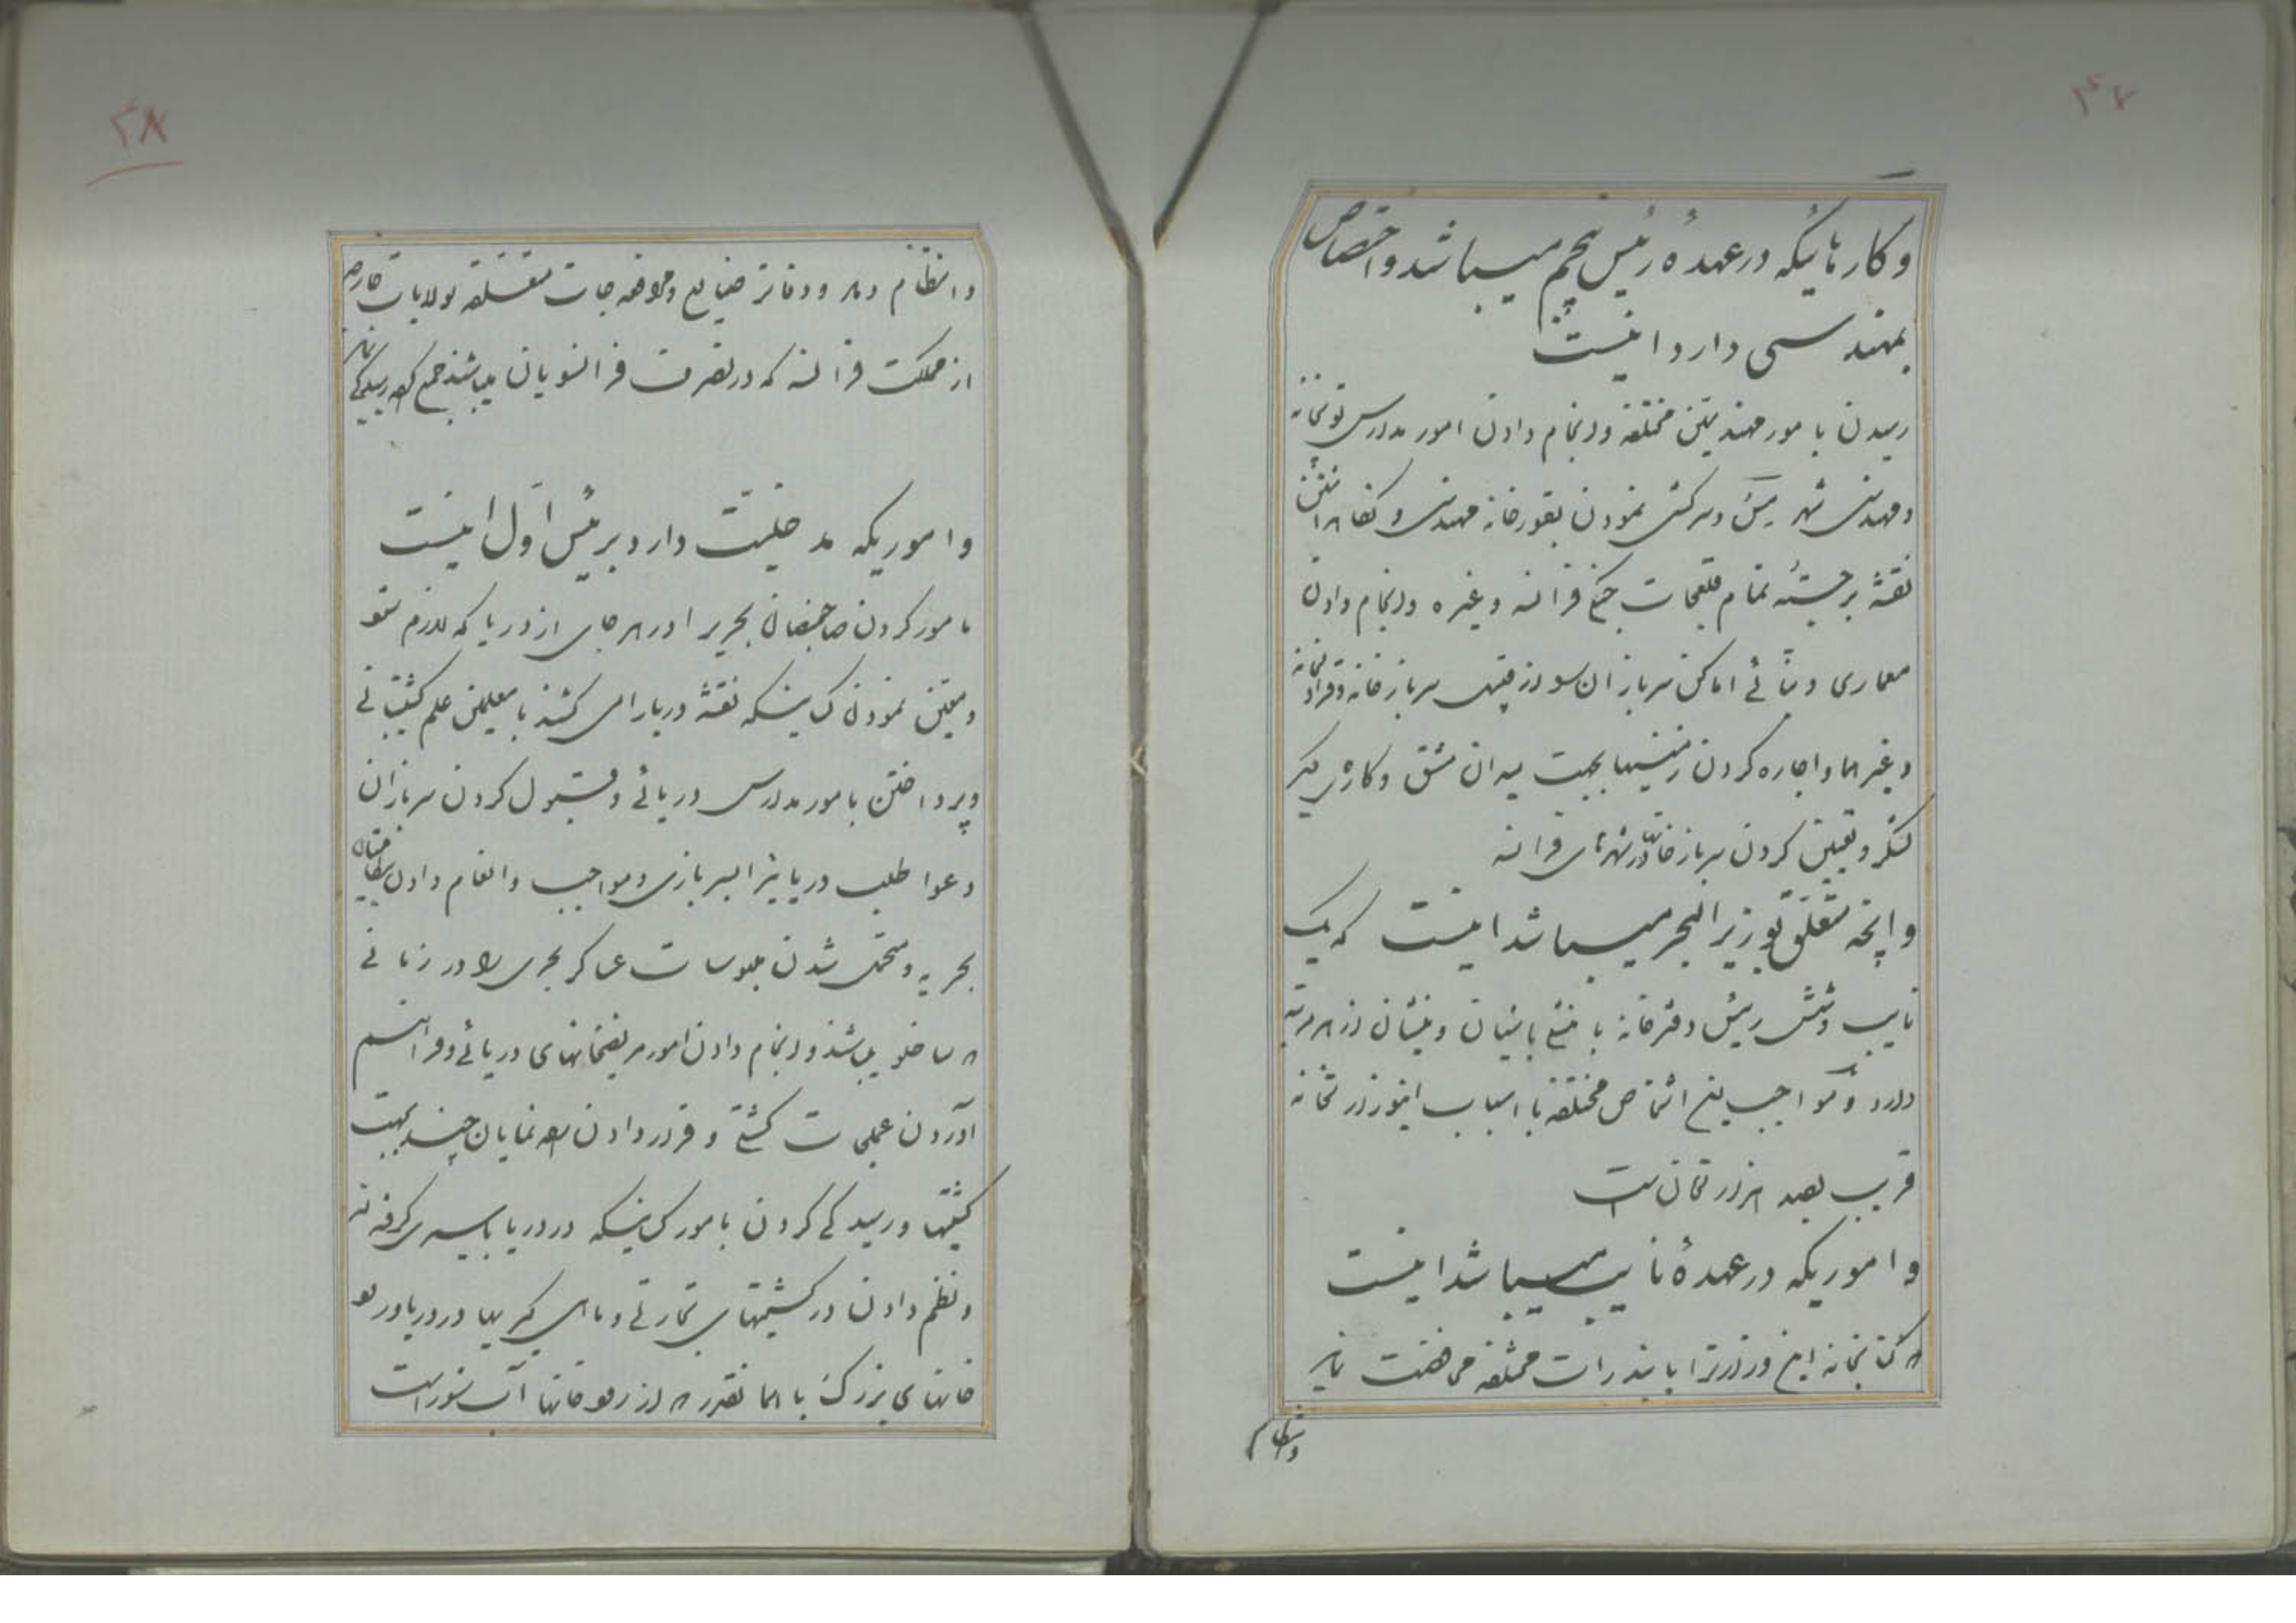 ۴۷
و کارهائیکه در عهدهٔ رئیس پنجم میباشد و اختصاص
بمهندسی دارد اینست
رسیدن بامور مهندسین مختلفه و انجام دادن امور مدارس توپخانه
و مهندسی شهر و سرکشی نمودن بقورخانه مهندسی و
نقشه برجستهٔ تمام قلعجات جنگی فرانسه و غیره و انجام دادن
معماری و بنائی اماکن سربازان از قبیل سربازخانه و قراولخانه
و غیرها و اجاره کردن زمینها بجهت میدان مشق و کارهای دیگر
لشکر و تعیین کردن سربازخانها در شهرهای فرانسه
و آنچه متعلق بوزیر البحر میباشد اینست که یک
نایب و شش رئیس دفترخانه با منشی باشیان و منشیان از هر مرتبه
دارد و مواجب این اشخاص مختلفه با اسباب این وزارتخانه
قریب بصد هزار تومان است
و اموریکه در عهدهٔ نایب میباشد اینست
که کتابخانه این وزارت را با بندرات مختلفه می
و انتظام
۴۸
و انتظام دادن و دفاتر ضایع و مرافعه جات متعلقه بولایات خارجه
از مملکت فرانسه که در تصرف فرانسویان میباشند جمع کرده رسیدگی نماید
و اموریکه مدخلیت دارد برئیس اول اینست
مامور کردن صاحبمنصبان بحریه را در هر جای از دریا که لازم شود
و معین نمودن کسانیکه نقشه دریا را می کشند با معلمین علم کشتیبانی
و پرداختن بامور مدارس دریائی و قبول کردن سربازان
دعوا طلب دریا نیز السربازی و مواجب و انعام دادن بصاحبمنصبان
بحریه و متحمل شدن ملبوسات عساکر بحری را در زمانی
که ساخلو میباشند و انجام دادن امور مریضخانهای دریائی و فراهم
آوردن عملجات کشتی و قرار دادن راه نمایان چند بجهت
کشتیها و رسیدگی کردن بامور کسانیکه در دریا باسیری گرفته اند
و نظم دادن در کشتیهای تجارتی و ماهی گیریها در دریا و رود
خانهای بزرگ با همانقدر که از رودخانها آب شور است